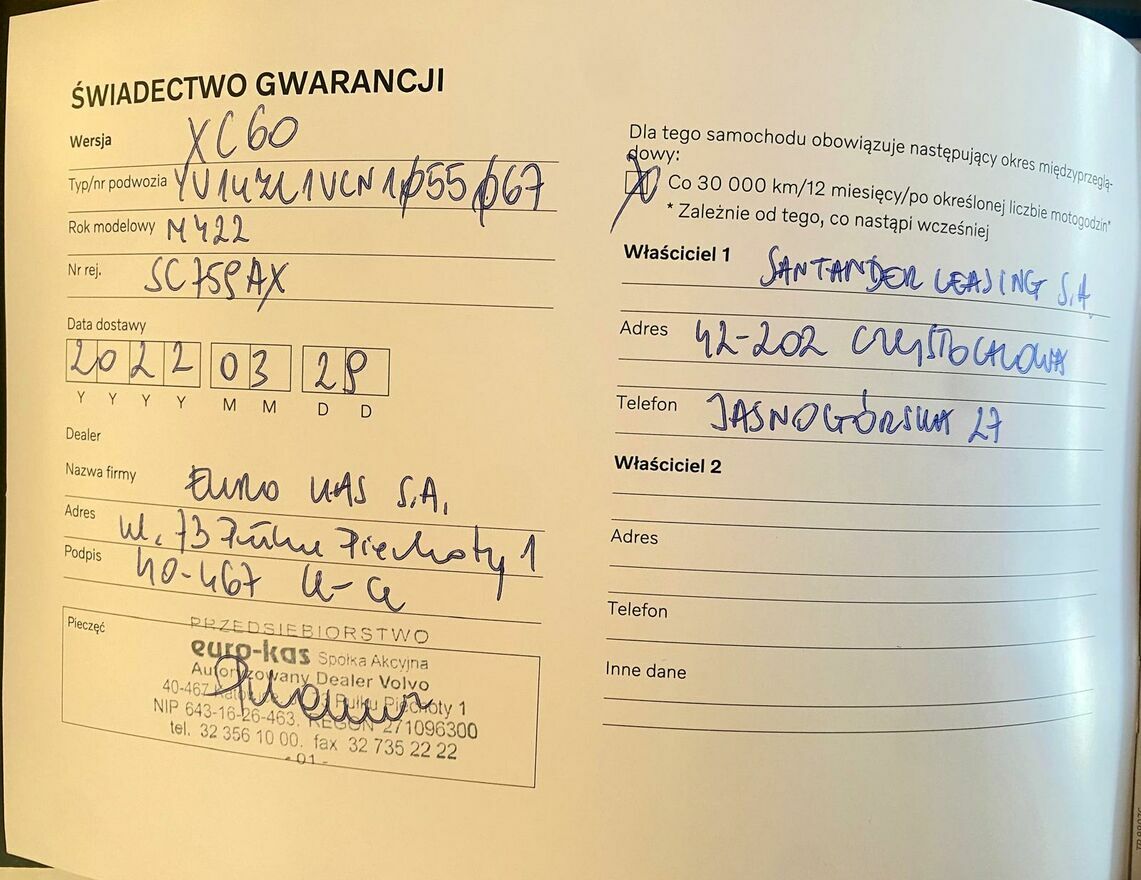 ŚWIADECTWO GWARANCJI
Wersja XC60
Typ/nr podwozia YV1UZL1VCN1055067
Rok modelowy MY22
Nr rej. SC759AX
Data dostawy
2022 03 29
Y Y Y Y M M D D
Dealer
Nazwa firmy EURO KAS S.A.
Adres ul. 73 Pułku Piechoty 1
Podpis 40-467 K-CE
Pieczęć
PRZEDSIĘBIORSTWO
euro-kas Spółka Akcyjna
Autoryzowany Dealer Volvo
40-467 Katowice 73 Pułku Piechoty 1
NIP 643-16-26-463. REGON 271096300
tel. 32 356 10 00. fax 32 735 22 22
- 01 -
Dla tego samochodu obowiązuje następujący okres międzyprzeglą-
dowy:
Co 30 000 km/12 miesięcy/po określonej liczbie motogodzin*
* Zależnie od tego, co nastąpi wcześniej
Właściciel 1 SANTANDER LEASING S.A.
Adres 42-202 CZĘSTOCHOWA
Telefon JASNOGÓRSKA 27
Właściciel 2
Adres
Telefon
Inne dane